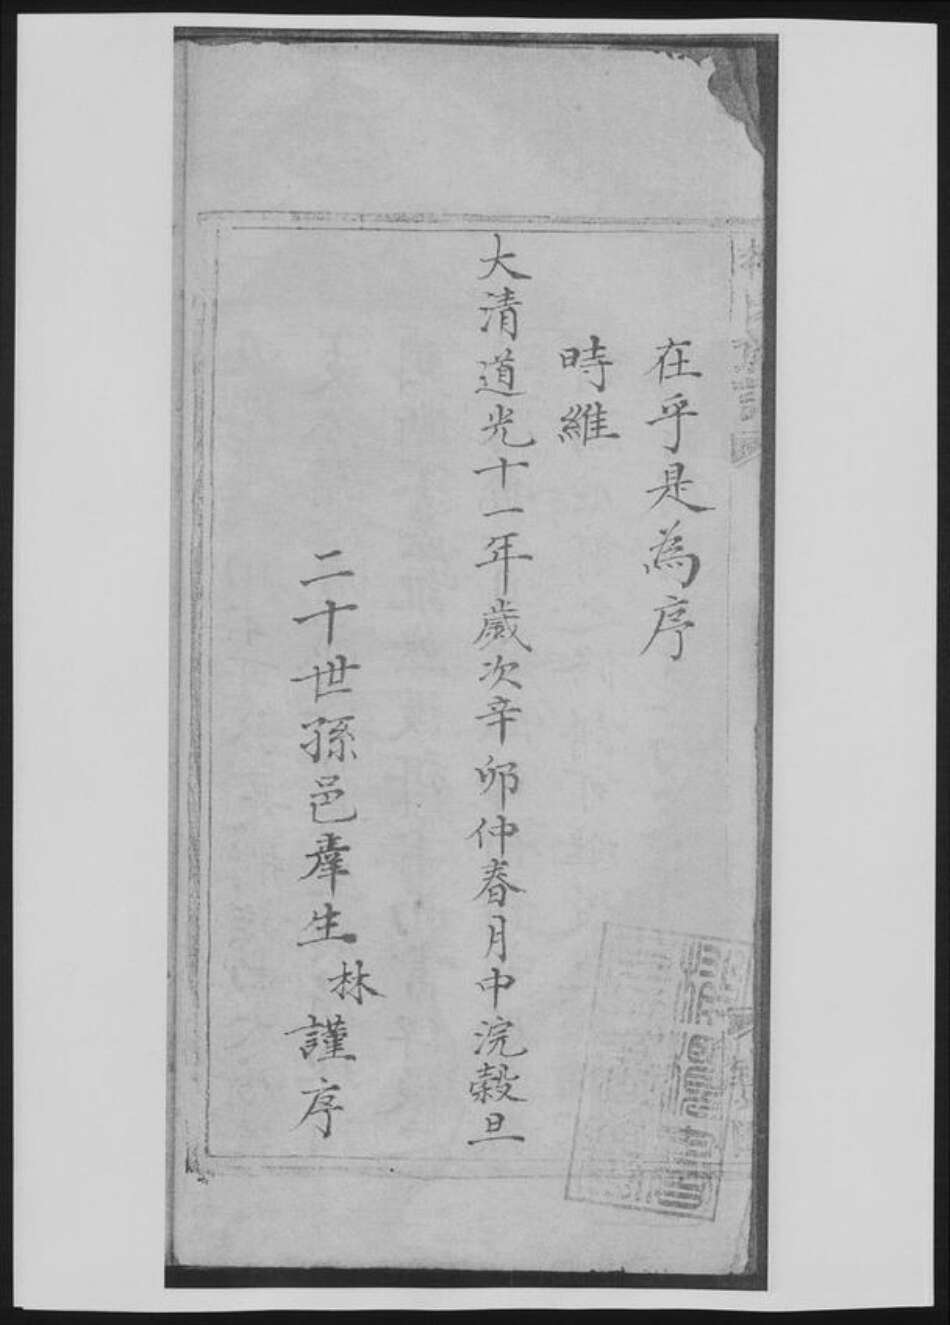 在乎是為序
時維
大清道光十一年歲次辛卯仲春月中浣穀旦
二十世孫邑庠生林謹序